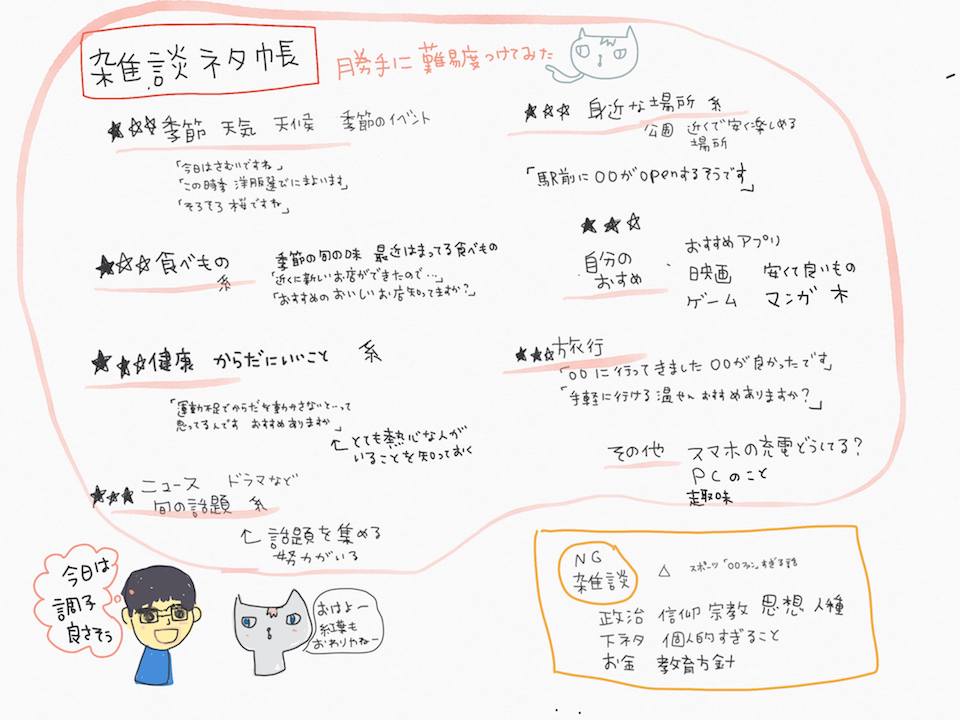 雑談ネタ帳
勝手に難易度つけてみた
★☆☆季節 天気 天候 季節のイベント
「今日はさむいですね」
「この時季 洋服選びにまよいます」
「そろそろ桜ですね」
★☆☆食べもの
系
季節の旬の味 最近はまってる食べもの
「近くに新しいお店ができたので…」
「おすすめのおいしいお店知ってますか?」
★★☆健康 からだにいいこと 系
「運動不足でからだを動かさないと…って
思ってるんです おすすめありますか」
←とても熱心な人が
いることを知っておく
★★★ニュース ドラマなど
旬の話題 系
←話題を集める
努力がいる
★☆☆ 身近な場所 系
公園 近くで安く楽しめる
場所
「駅前に〇〇がopenするそうです」
★★☆
自分の
おすすめ
・おすすめアプリ
映画 安くて良いもの
ゲーム マンガ 本
★★☆旅行
「〇〇に行ってきました 〇〇が良かったです」
「手軽に行ける温せん おすすめありますか?」
その他 スマホの充電どうしてる?
PCのこと
趣味
今日は
調子
良さそう
おはよー
紅葉も
おわりやねー
NG
雑談
△ スポーツ「〇〇ファン」すぎる話
政治 信仰 宗教 思想 人種
下ネタ 個人的すぎること
お金 教育方針